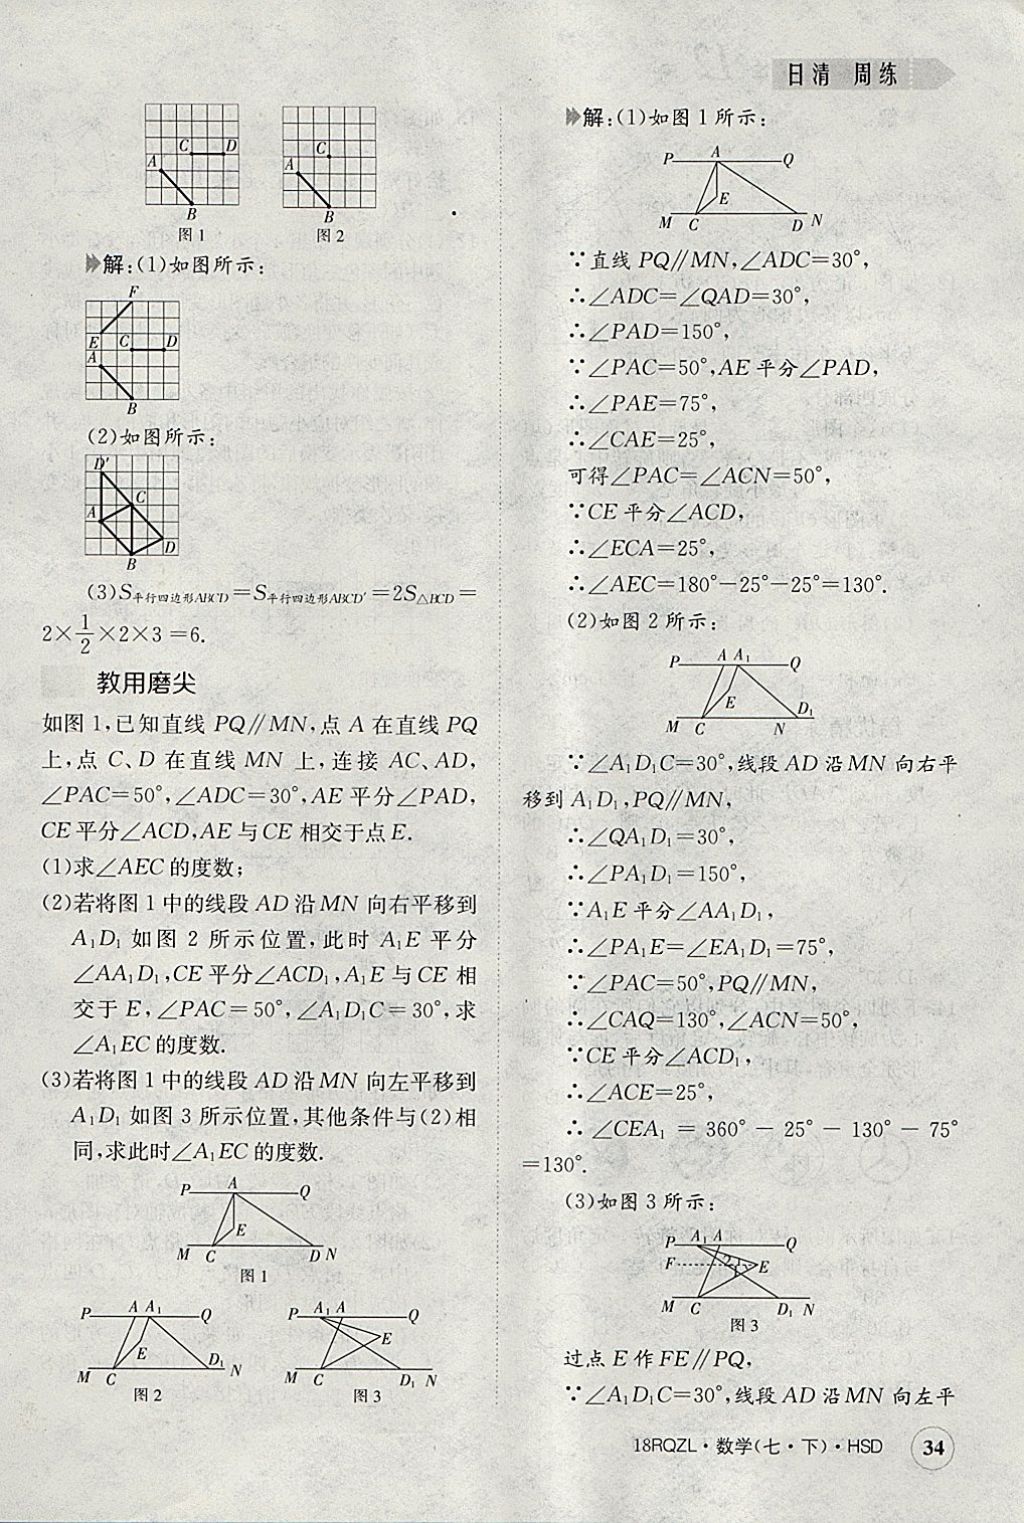 日清 周练
A
B
C
D
图1
A
B
C
图2
解:(1)如图所示:
F
E
C
D
A
B
(2)如图所示:
D′
C
A
D
B
(3)S平行四边形ABCD=S平行四边形ABCD′=2S△BCD=
2×1/2×2×3=6.
教用磨尖
如图1,已知直线PQ∥MN,点A在直线PQ
上,点C、D在直线MN上,连接AC、AD,
∠PAC=50°,∠ADC=30°,AE平分∠PAD,
CE平分∠ACD,AE与CE相交于点E.
(1)求∠AEC的度数;
(2)若将图1中的线段AD沿MN向右平移到
A₁D₁如图2所示位置,此时A₁E平分
∠AA₁D₁,CE平分∠ACD₁,A₁E与CE相
交于E,∠PAC=50°,∠A₁D₁C=30°,求
∠A₁EC的度数.
(3)若将图1中的线段AD沿MN向左平移到
A₁D₁如图3所示位置,其他条件与(2)相
同,求此时∠A₁EC的度数.
P A Q
E
M C D N
图1
P A A₁ Q
E
M C D₁ N
图2
P A₁ A Q
E
M C D₁ N
图3
解:(1)如图1所示:
P A Q
E
M C D N
∵直线PQ∥MN,∠ADC=30°,
∴∠ADC=∠QAD=30°,
∴∠PAD=150°,
∵∠PAC=50°,AE平分∠PAD,
∴∠PAE=75°,
∴∠CAE=25°,
可得∠PAC=∠ACN=50°,
∵CE平分∠ACD,
∴∠ECA=25°,
∴∠AEC=180°-25°-25°=130°.
(2)如图2所示:
P A A₁ Q
E
D₁
M C N
∵∠A₁D₁C=30°,线段AD沿MN向右平
移到A₁D₁,PQ∥MN,
∴∠QA₁D₁=30°,
∴∠PA₁D₁=150°,
∵A₁E平分∠AA₁D₁,
∴∠PA₁E=∠EA₁D₁=75°,
∵∠PAC=50°,PQ∥MN,
∴∠CAQ=130°,∠ACN=50°,
∵CE平分∠ACD₁,
∴∠ACE=25°,
∴∠CEA₁=360°-25°-130°-75°
=130°.
(3)如图3所示:
P A₁ A Q
F 2 1 E
M C D₁ N
图3
过点E作FE∥PQ,
∵∠A₁D₁C=30°,线段AD沿MN向左平
18RQZL·数学(七·下)·HSD 34